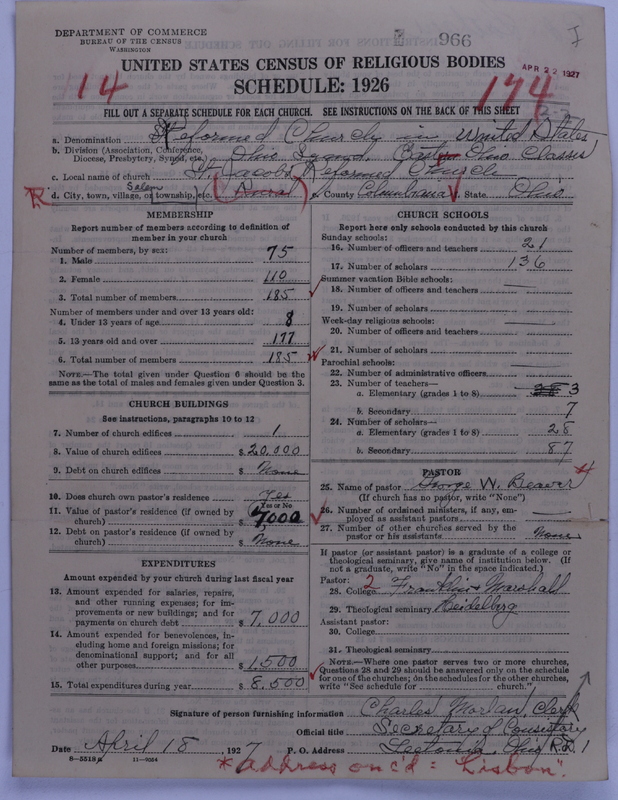 DEPARTMENT OF COMMERCE
BUREAU OF THE CENSUS
WASHINGTON
966
I
UNITED STATES CENSUS OF RELIGIOUS BODIES
APR 22 1927
SCHEDULE: 1926
14
174
FILL OUT A SEPARATE SCHEDULE FOR EACH CHURCH. SEE INSTRUCTIONS ON THE BACK OF THIS SHEET
a. Denomination Reformed Church in United States
b. Division (Association, Conference, Diocese, Presbytery, Synod, etc.) Ohio Synod, East Ohio Classis
c. Local name of church St. Jacobs Reformed Church
R d. City, town, village, or township, etc. Salem (Rural) e. County Columbiana State Ohio
MEMBERSHIP
Report number of members according to definition of member in your church
Number of members, by sex:
1. Male 75
2. Female 110
3. Total number of members 185
Number of members under and over 13 years old:
4. Under 13 years of age 8
5. 13 years old and over 177
6. Total number of members 185
NOTE.—The total given under Question 6 should be the same as the total of males and females given under Question 3.
CHURCH BUILDINGS
See instructions, paragraphs 10 to 12
7. Number of church edifices 1
8. Value of church edifices $ 20,000
9. Debt on church edifices $ None
10. Does church own pastor's residence Yes
Yes or No
11. Value of pastor's residence (if owned by church) $ 7000
12. Debt on pastor's residence (if owned by church) $ None
EXPENDITURES
Amount expended by your church during last fiscal year
13. Amount expended for salaries, repairs, and other running expenses; for improvements or new buildings; and for payments on church debt $ 7,000
14. Amount expended for benevolences, including home and foreign missions; for denominational support; and for all other purposes $ 1,500
15. Total expenditures during year $ 8,500
CHURCH SCHOOLS
Report here only schools conducted by this church
Sunday schools:
16. Number of officers and teachers 21
17. Number of scholars 136
Summer vacation Bible schools:
18. Number of officers and teachers
19. Number of scholars
Week-day religious schools:
20. Number of officers and teachers
21. Number of scholars
Parochial schools:
22. Number of administrative officers
23. Number of teachers—
a. Elementary (grades 1 to 8) 3
b. Secondary 7
24. Number of scholars—
a. Elementary (grades 1 to 8) 28
b. Secondary 87
PASTOR
25. Name of pastor George W. Beaver *
(If church has no pastor, write "None")
26. Number of ordained ministers, if any, employed as assistant pastors
27. Number of other churches served by the pastor or his assistants None
If pastor (or assistant pastor) is a graduate of a college or theological seminary, give name of institution below. (If not a graduate, write "No" in the space indicated.)
Pastor:
28. College 2 Franklin & Marshall
29. Theological seminary Heidelberg
Assistant pastor:
30. College
31. Theological seminary
NOTE.—Where one pastor serves two or more churches, Questions 28 and 29 should be answered only on the schedule for one of the churches; on the schedules for the other churches, write "See schedule for church."
Signature of person furnishing information Charles Morlan, Clerk
Official title Secretary of Consistory
Date April 18, 1927 P. O. Address Leetonia, Ohio R.D. 1
8—5518a 11—9064
* address on c'd: "Lisbon".